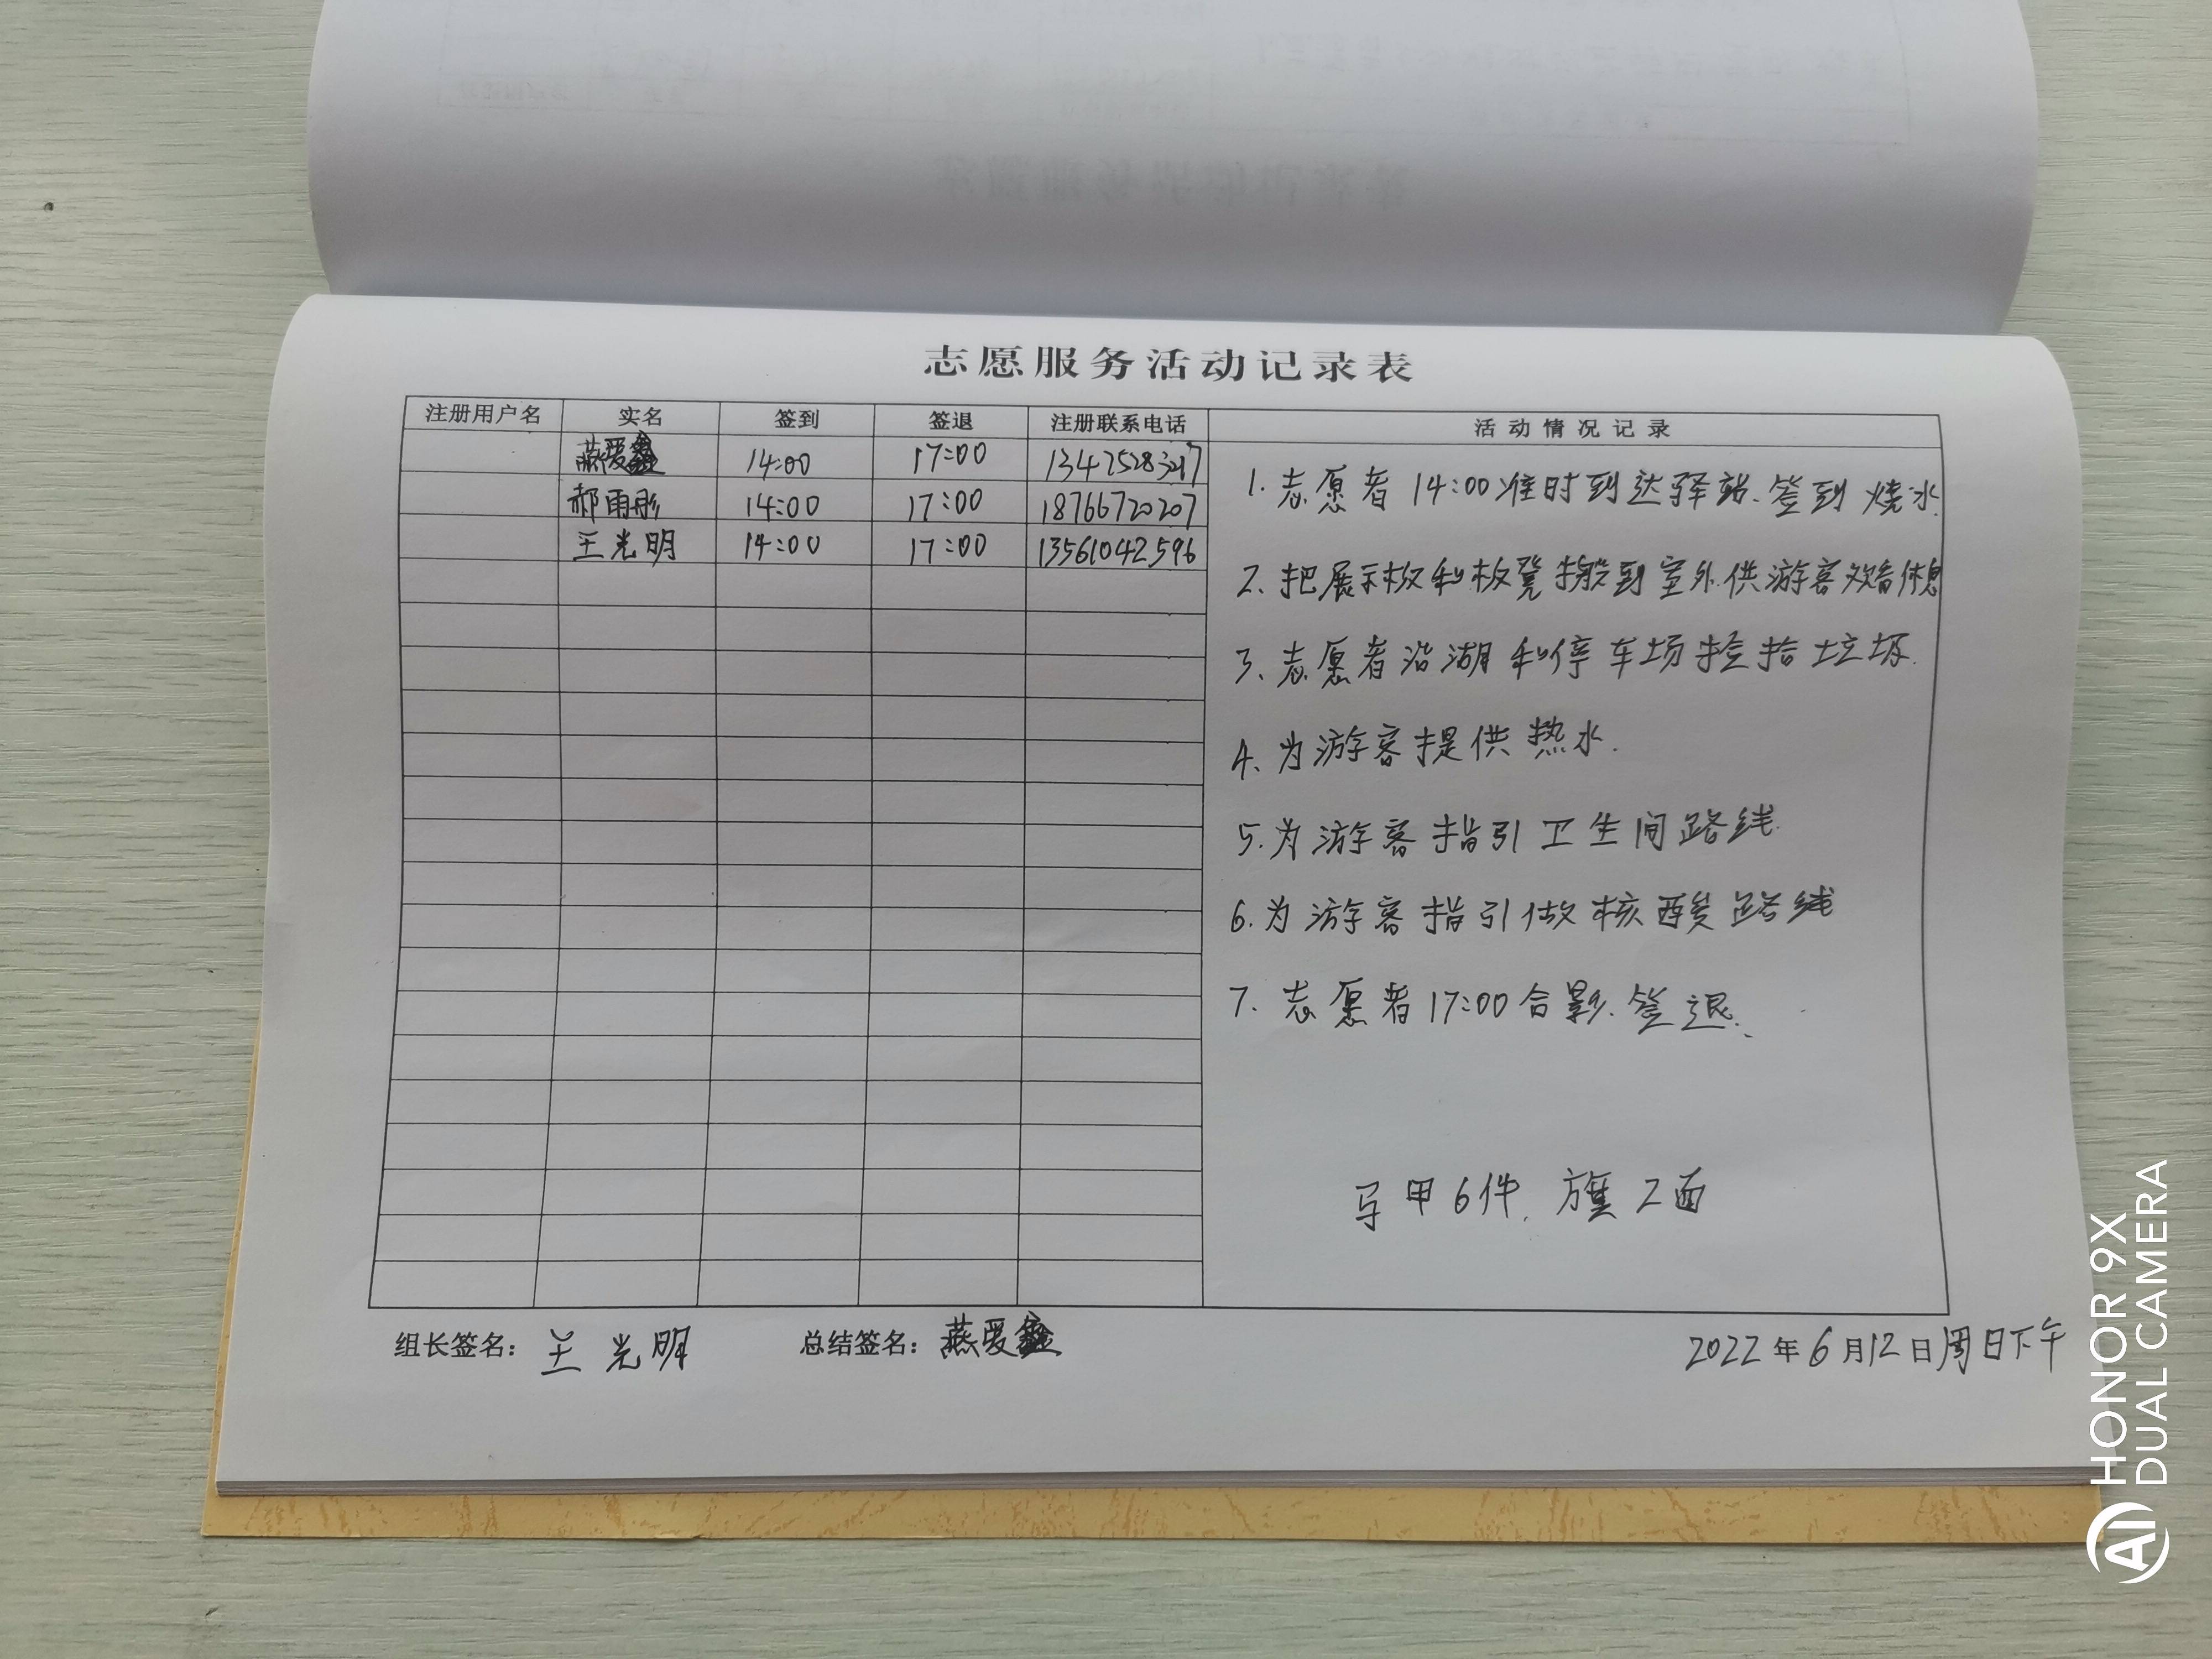 志愿服务活动记录表
注册用户名 实名 签到 签退 注册联系电话 活动情况记录
燕爱鑫 14:00 17:00
郝雨彤 14:00 17:00 18766720207
王光明 14:00 17:00 13561042596
1. 志愿者 14:00准时到达驿站、签到 烧水.
2、把展示板和板凳搬到室外.供游客观看休息
3、志愿者沿湖和停车场捡拾垃圾.
4、为游客提供热水.
5.为游客指引卫生间路线.
6.为游客指引做核酸路线
7. 志愿者17:00合影.签退.
马甲6件. 旗2面
组长签名: 王光明 总结签名: 燕爱鑫 2022年6月12日周日下午
HONOR 9X
DUAL CAMERA
AI